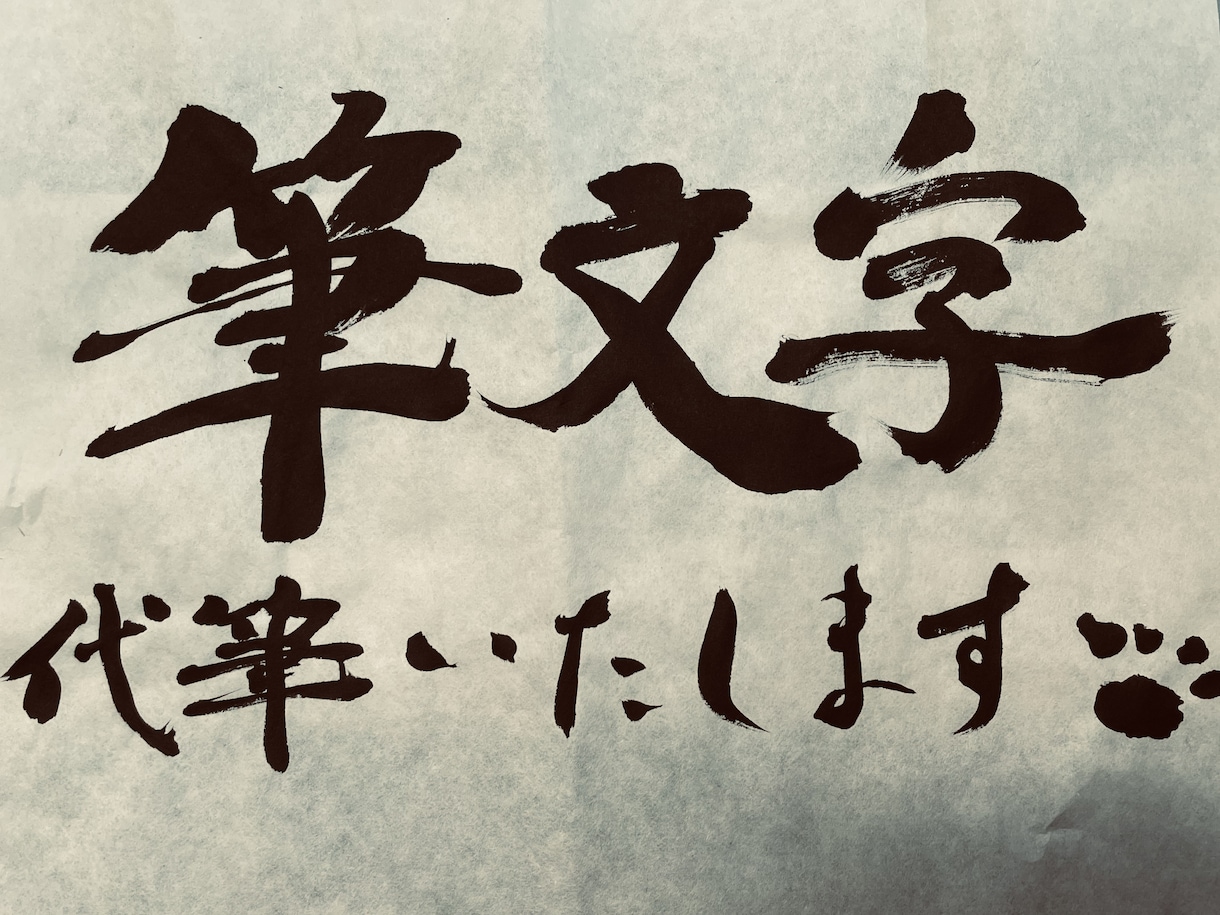 筆文字
代筆いたします